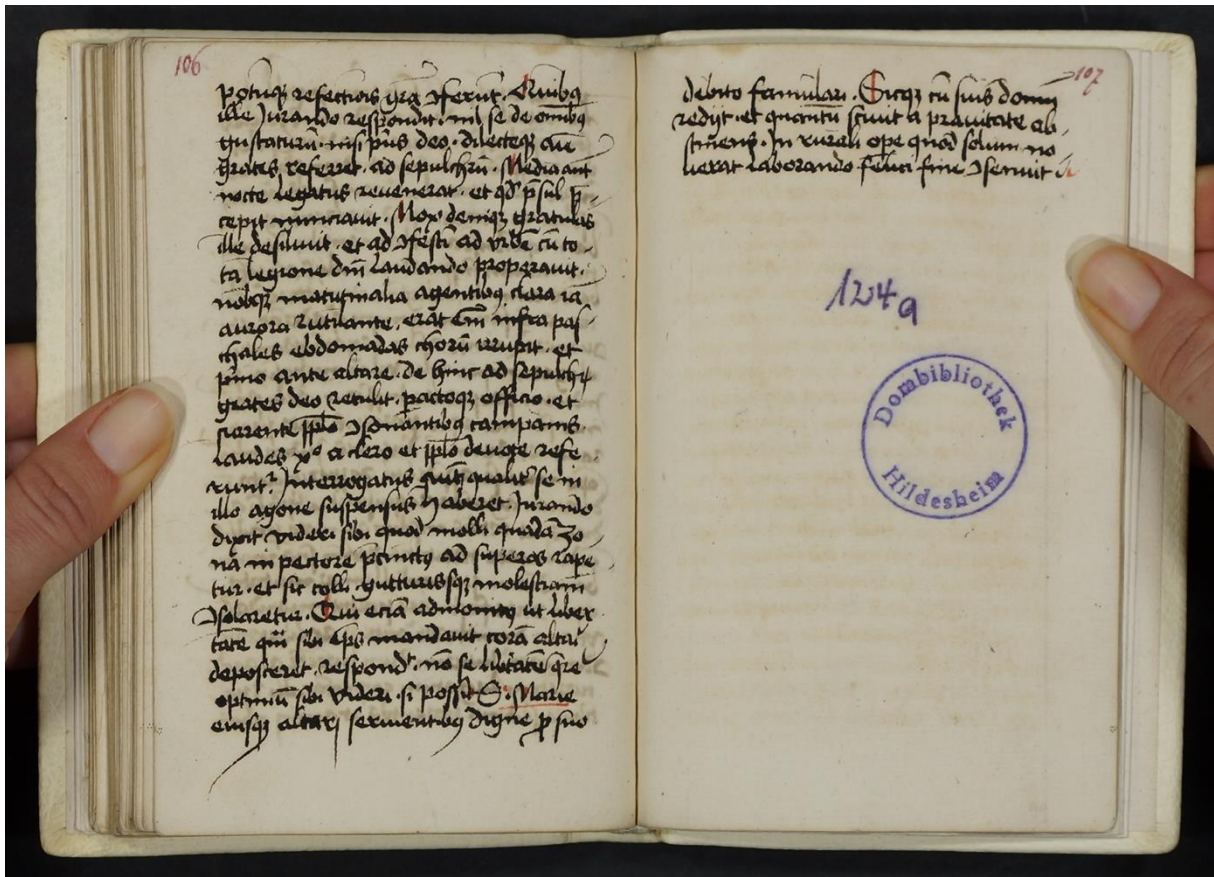 106
potusq; refectiois grā ɔferunt. Quibus
ille Jurando respondit. nil se de omnibus
gustaturū. nisi prius deo. dilecteq; aīe
grates referret. ad sepulchrū. Media aut
nocte legatus revenerat. et qd p̄sul p̄-
cepit nunciavit. Mox deniq;
ille desiluit. et ad urbē cū to-
ta legione dm̄ laudando properavit.
nobisq; matutinalia agentibus clara iā
aurora rutilante. erāt em̄ infra pas-
chales ebdomadas chorū irrupit. et
primo ante altare. de hinc ad sepulchrū
grates deo retulit. pactoq; officio. et
currente pplo ɔsonantibus campanis.
laudes xp̄o a clero et pplo devote refe
runt᷑. Interrogatus qualit᷑ se in
illo agone suspensus haberet. Jurando
dixit videri sibi quod molli quadā zo-
nā in pectore p̄cinctus ad superos rape
tur. et sic colli gutturisq; molestiam
ɔsolaretur. Qui eciā admonitus ut liber
tatē quā sibi ep̄s mandavit corā altari
deposceret. respond᷑. nō se libtatē q̄re
optimū sibi videri. si possit S. Marie
eiusq; altari servientibus digne p suo
107
debito famulari. Sicq; cū suis domū
redijt. et quantū scivit a pravitate ab-
stinens. In rurali ope quod solum no-
verat laborando felici fine ɔsenuit
124a
Dombibliothek
Hildesheim